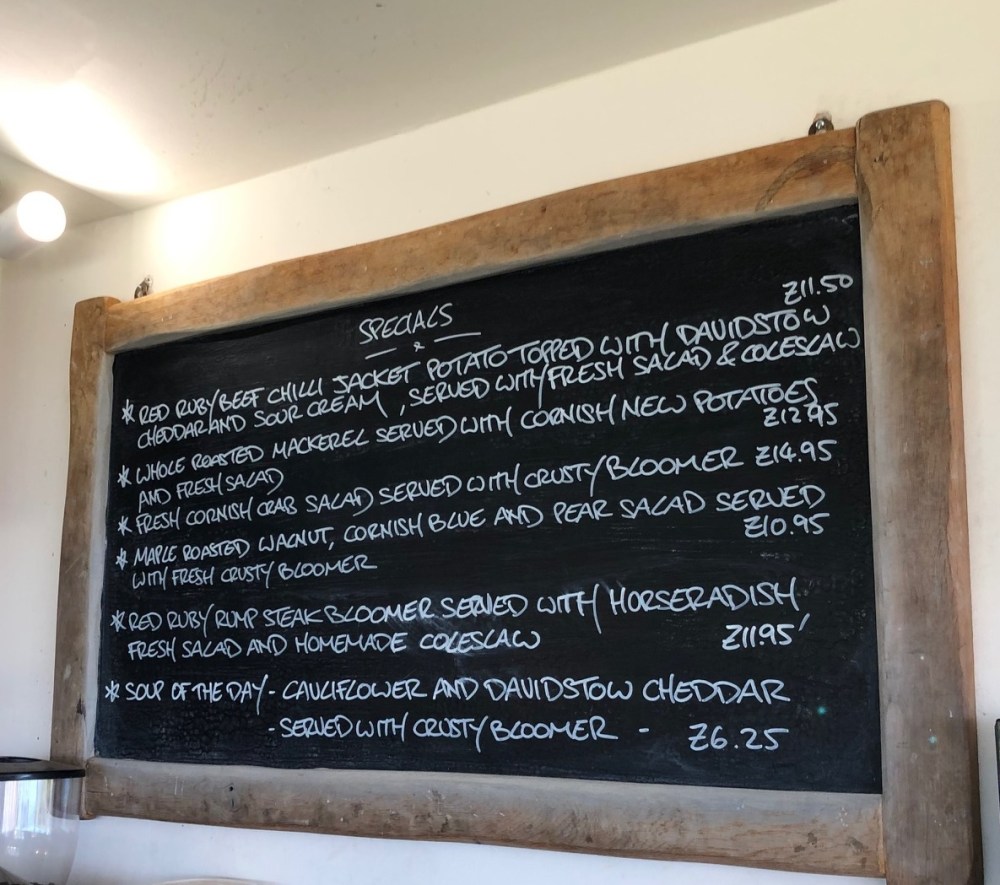 SPECIALS
£11.50
* RED RUBY BEEF CHILLI JACKET POTATO TOPPED WITH DAVIDSTOW
CHEDDAR AND SOUR CREAM, SERVED WITH FRESH SALAD & COLESLAW
* WHOLE ROASTED MACKEREL SERVED WITH CORNISH NEW POTATOES
AND FRESH SALAD £12.95
* FRESH CORNISH CRAB SALAD SERVED WITH CRUSTY BLOOMER £14.95
* MAPLE ROASTED WALNUT, CORNISH BLUE AND PEAR SALAD SERVED
WITH FRESH CRUSTY BLOOMER £10.95
* RED RUBY RUMP STEAK BLOOMER SERVED WITH HORSERADISH,
FRESH SALAD AND HOMEMADE COLESLAW £11.95
* SOUP OF THE DAY - CAULIFLOWER AND DAVIDSTOW CHEDDAR
- SERVED WITH CRUSTY BLOOMER - £6.25